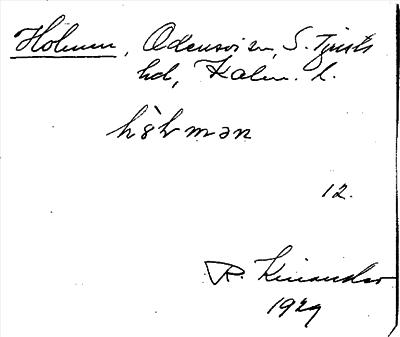 Holmen, Odensvi sn, S. Tjusts
hd, Kalm. l.
hȯlmən
12.
R. Kinander
1929